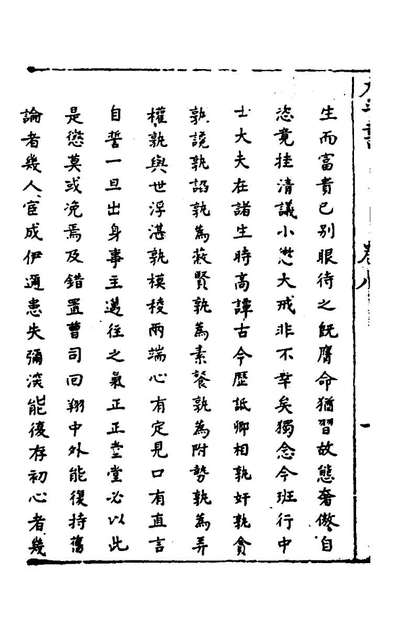 生而富貴已別眼待之既膺命猶習故態奢傲自
恣竟挂清議小懲大戒非不幸矣獨念今班行中
士大夫在諸生時高譚古今歷詆卿相孰奸孰貪
孰諛孰諂孰為蔽賢孰為素餐孰為附勢孰為弄
權孰與世浮湛孰模稜兩端心有定見口有直言
自誓一旦出身事主邁往之氣正正堂堂必以此
是懲莫或浼焉及錯置曹司回翔中外能復持舊
論者幾人宦成伊邇患失彌深能復存初心者幾